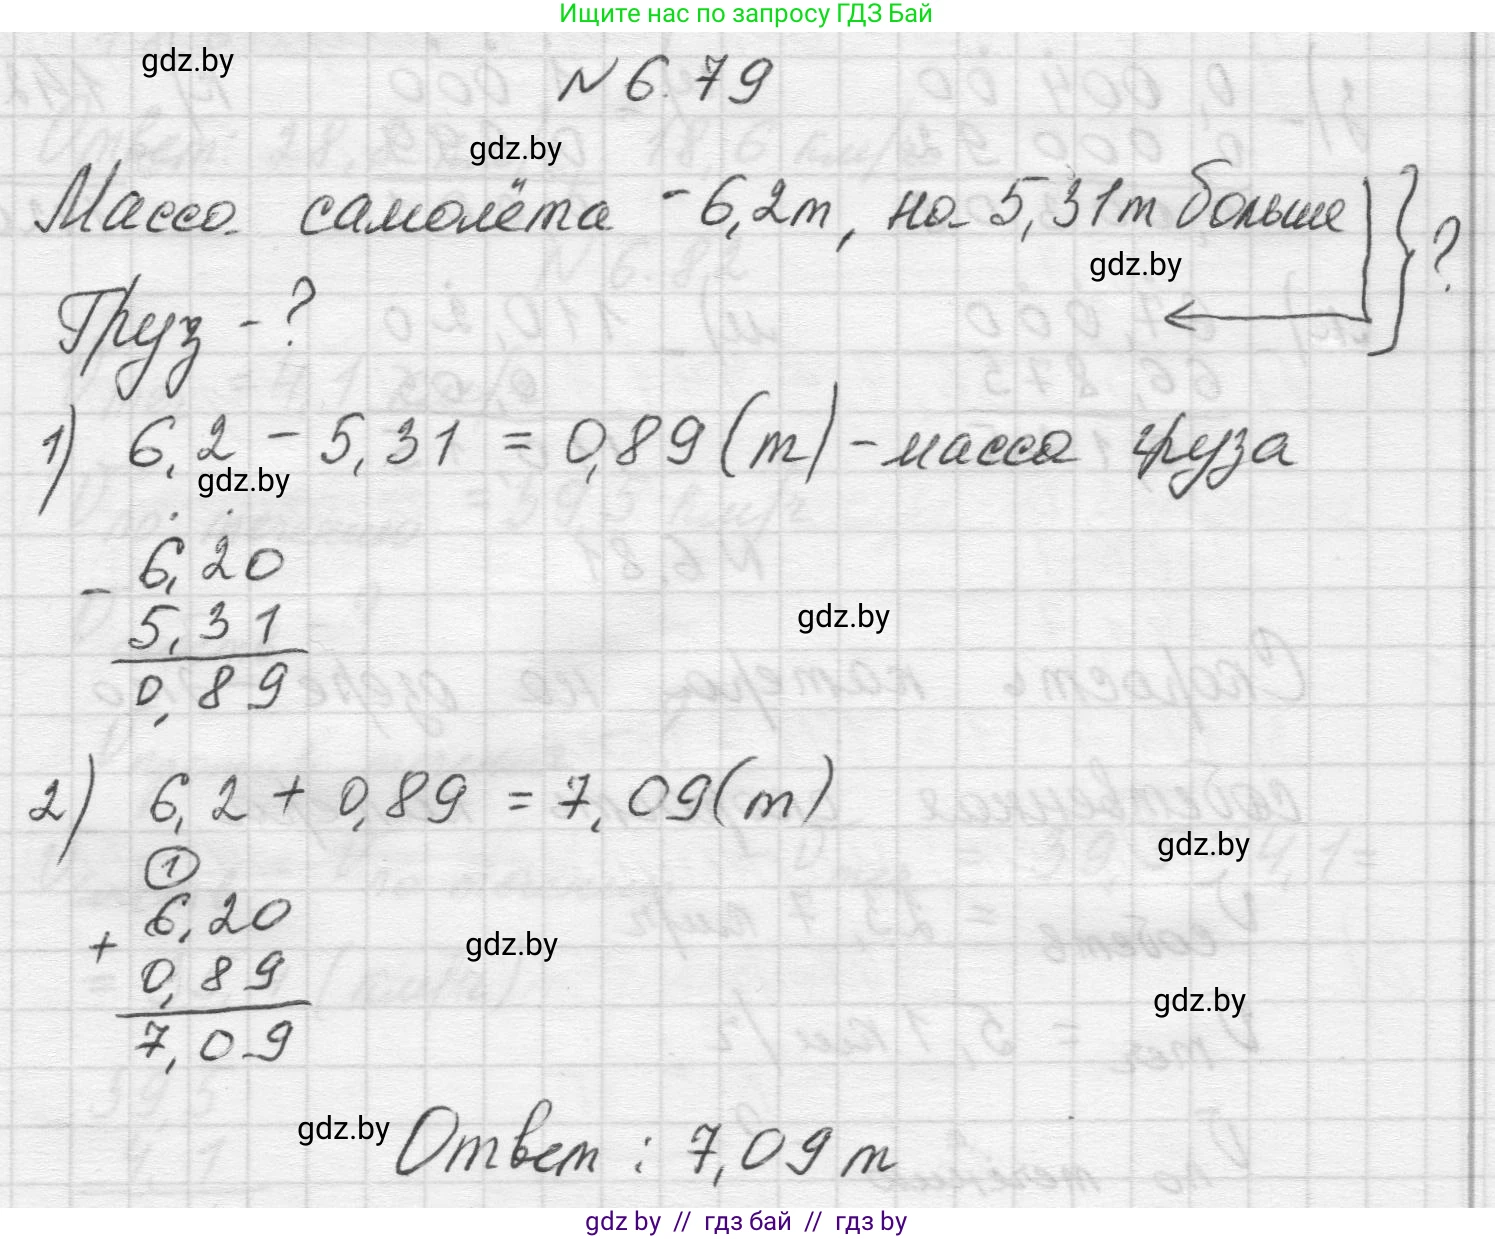 Ищите нас по запросу ГДЗ Бай
gdz.by
№ 6.79
gdz.by
Масса самолёта - 6,2т, на 5,31т больше
gdz.by
?
Груз - ?
1) 6,2 - 5,31 = 0,89 (т) - масса груза
gdz.by
- 6,20
5,31
0,89
gdz.by
2) 6,2 + 0,89 = 7,09 (т)
gdz.by
1
+ 6,20
0,89
7,09
gdz.by
gdz.by
gdz.by
Ответ : 7,09 т
gdz by // гдз бай // гдз by